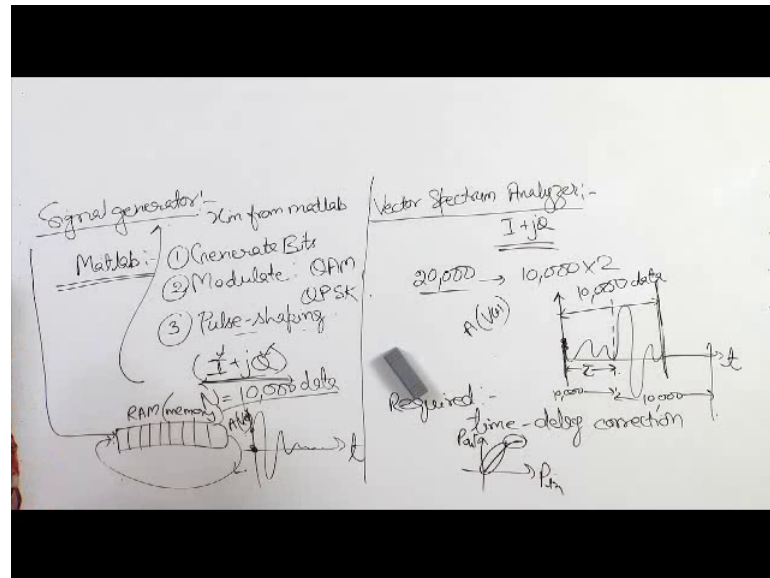 Signal generator:-
Xin from matlab
Matlab:-
① Generate Bits
② Modulate: QAM
QPSK
③ Pulse-shaping
(I + jQ)
N = 10,000 data
RAM (memory)
t
Vector Spectrum Analyzer:-
I + jQ
20,000 → 10,000 x 2
10,000 data
A(V)
t
τ
10,000
10000
Required:-
time-delay correction
Pin